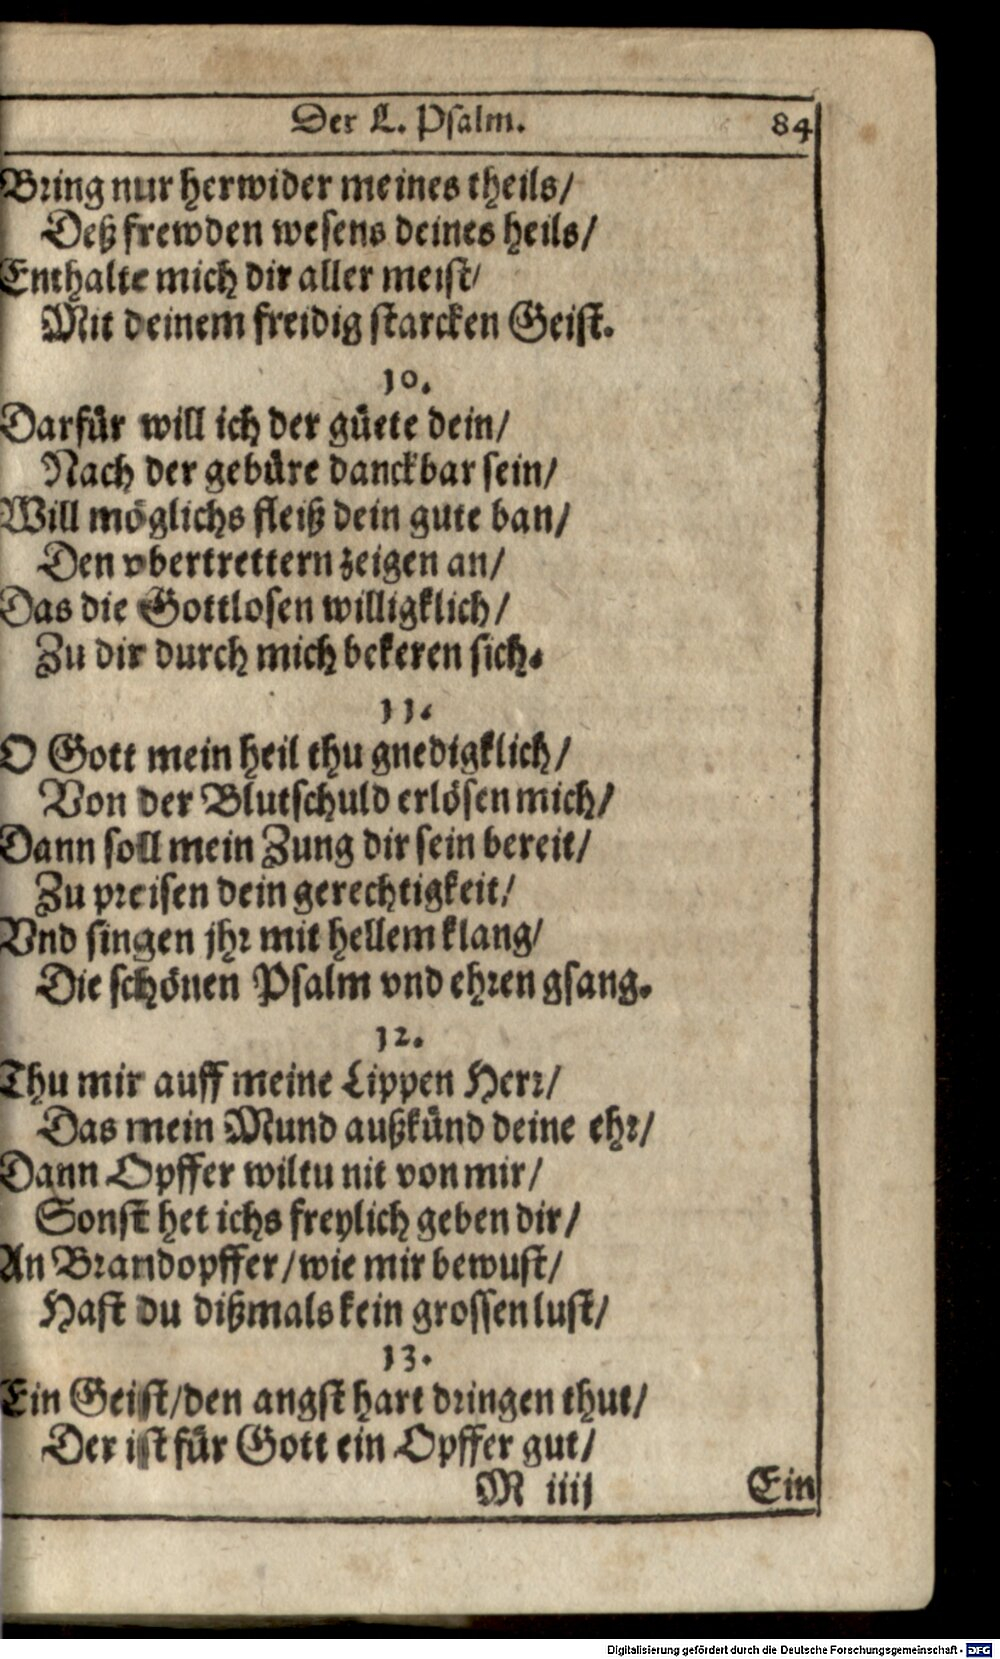 Der L. Psalm. 84
Bring nur herwider meines theils/
Deß frewden wesens deines heils/
Enthalte mich dir aller meist/
Mit deinem freidig starcken Geist.
10.
Darfür will ich der güete dein/
Nach der gebüre danckbar sein/
Will möglichs fleiß dein gute ban/
Den vbertrettern zeigen an/
Das die Gottlosen willigklich/
Zu dir durch mich bekeren sich.
11.
O Gott mein heil thu gnedigklich/
Von der Blutschuld erlösen mich/
Dann soll mein Zung dir sein bereit/
Zu preisen dein gerechtigkeit/
Vnd singen jhr mit hellem klang/
Die schönen Psalm vnd ehren gsang.
12.
Thu mir auff meine Lippen Herr/
Das mein Mund außkünd deine ehr/
Dann Opffer wiltu nit von mir/
Sonst het ichs freylich geben dir/
An Brandopffer/wie mir bewust/
Hast du dißmals kein grossen lust/
13.
Ein Geist/den angst hart dringen thut/
Der ist für Gott ein Opffer gut/
M iiij Ein
Digitalisierung gefördert durch die Deutsche Forschungsgemeinschaft - DFG